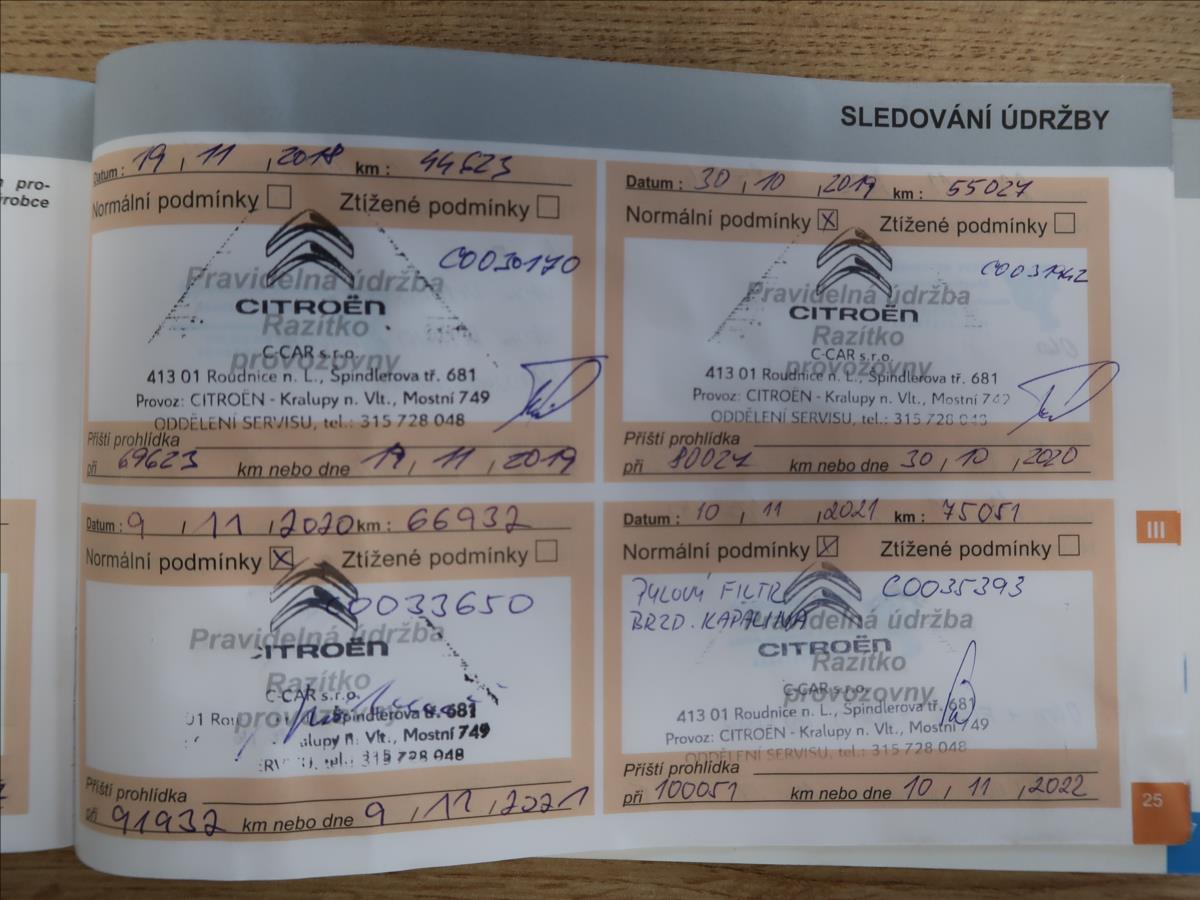 SLEDOVÁNÍ ÚDRŽBY
pro-
ýrobce
Datum : 19 , 11 , 2018 km : 44623
Normální podmínky Ztížené podmínky
C0030170
Pravidelná údržba
CITROËN
Razítko
provozovny
C-CAR s.r.o.
413 01 Roudnice n. L., Špindlerova tř. 681
Provoz: CITROËN - Kralupy n. Vlt., Mostní 749
ODDĚLENÍ SERVISU, tel.: 315 728 048
Příští prohlídka
při 69623 km nebo dne 19 , 11 , 2019
Datum : 30 , 10 , 2019 km : 55027
Normální podmínky X Ztížené podmínky
C0031942
Pravidelná údržba
CITROËN
Razítko
provozovny
C-CAR s.r.o.
413 01 Roudnice n. L., Špindlerova tř. 681
Provoz: CITROËN - Kralupy n. Vlt., Mostní 749
ODDĚLENÍ SERVISU, tel.: 315 728 048
Příští prohlídka
při 80027 km nebo dne 30 , 10 , 2020
Datum : 9 , 11 , 2020 km : 66932
Normální podmínky X Ztížené podmínky
C0033650
Pravidelná údržba
CITROËN
Razítko
provozovny
C-CAR s.r.o.
01 Rou Špindlerova tř. 681
alupy n. Vlt., Mostní 749
ERV U, tel.: 315 728 048
Příští prohlídka
při 91932 km nebo dne 9 , 11 , 2021
Datum : 10 , 11 , 2021 km : 75051
Normální podmínky X Ztížené podmínky
PYLOVÝ FILTR C0035393
BRZD. KAPALINA
Pravidelná údržba
CITROËN
Razítko
provozovny
C-CAR s.r.o.
413 01 Roudnice n. L., Špindlerova tř. 681
Provoz: CITROËN - Kralupy n. Vlt., Mostní 749
ODDĚLENÍ SERVISU, tel.: 315 728 048
Příští prohlídka
při 100051 km nebo dne 10 , 11 , 2022
III
25